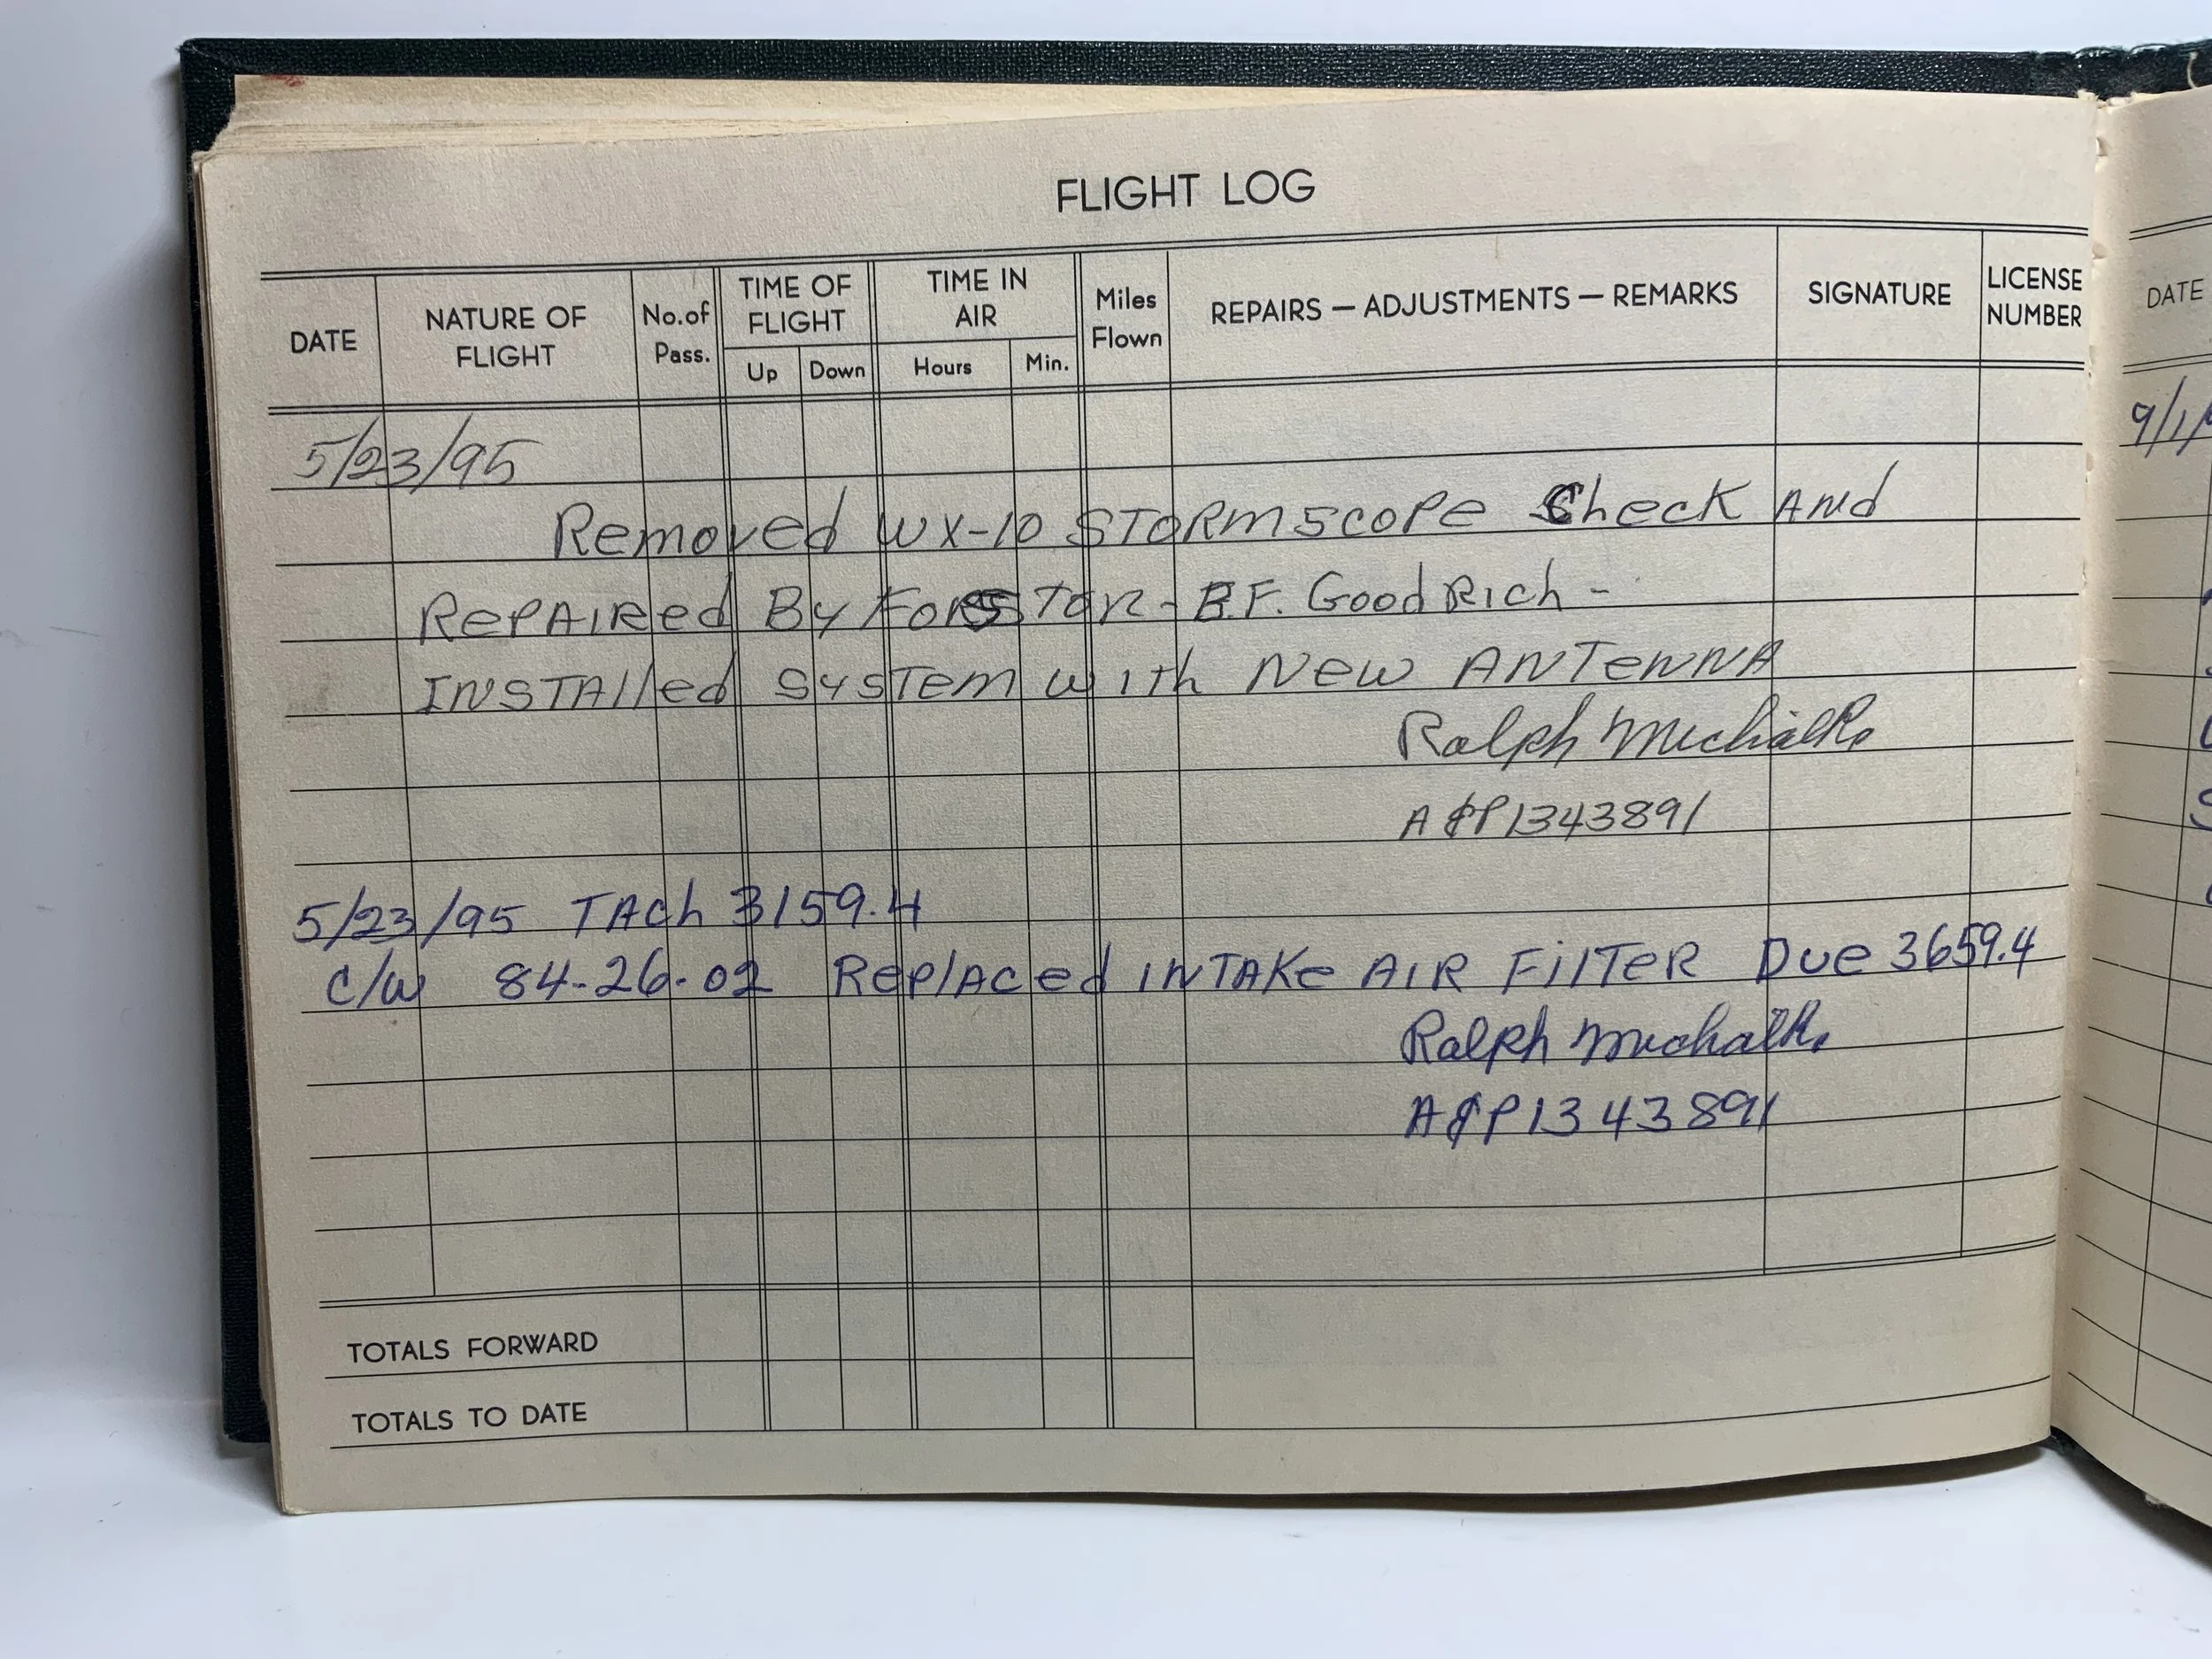 FLIGHT LOG
DATE NATURE OF FLIGHT No.of Pass. TIME OF FLIGHT Up Down TIME IN AIR Hours Min. Miles Flown REPAIRS — ADJUSTMENTS — REMARKS SIGNATURE LICENSE NUMBER
5/23/95
Removed WX-10 STORMSCOPE Check AND
RePAIRed By B.F. GoodRich -
INSTAlled SYSTEM with New ANTENNA
Ralph Michalk
A&P1343891
5/23/95 TACh 3159.4
C/W 84-26-02 ReplAced INTAKe AIR FilTeR Due 3659.4
Ralph Michalk
A&P1343891
TOTALS FORWARD
TOTALS TO DATE
DATE
9/1/